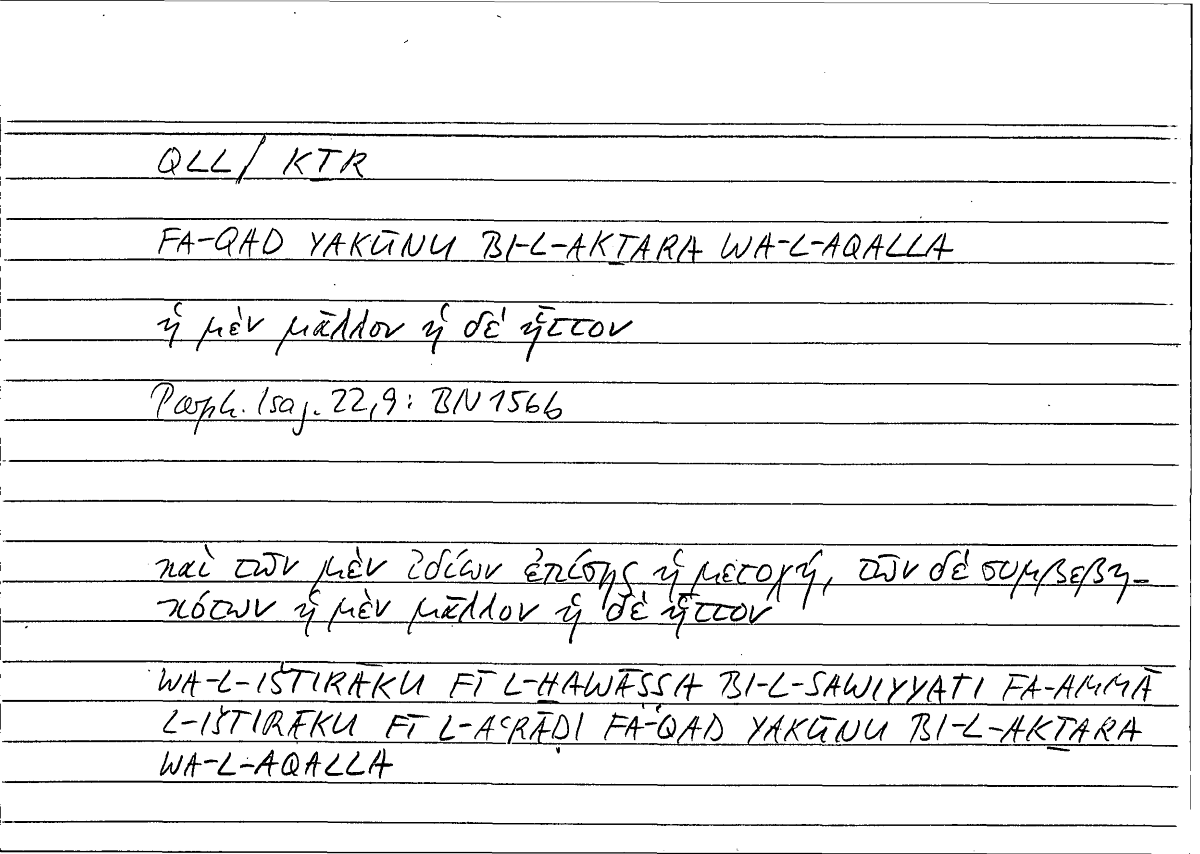 QLL / KṮR
FA-QAD YAKŪNU BI-L-AKṮARA WA-L-AQALLA
ἡ μὲν μᾶλλον ἡ δὲ ἧττον
Porph. Isag. 22,9: BN 156b
καὶ τῶν μὲν ἰδίων ἐπίσης ἡ μετοχή, τῶν δὲ συμβεβη-
κότων ἡ μὲν μᾶλλον ἡ δὲ ἧττον
WA-L-IŠTIRĀKU FĪ L-ḪAWĀṢṢA BI-L-SAWIYYATI FA-AMMĀ
L-IŠTIRĀKU FĪ L-AʿRĀḌI FA-QAD YAKŪNU BI-L-AKṮARA
WA-L-AQALLA